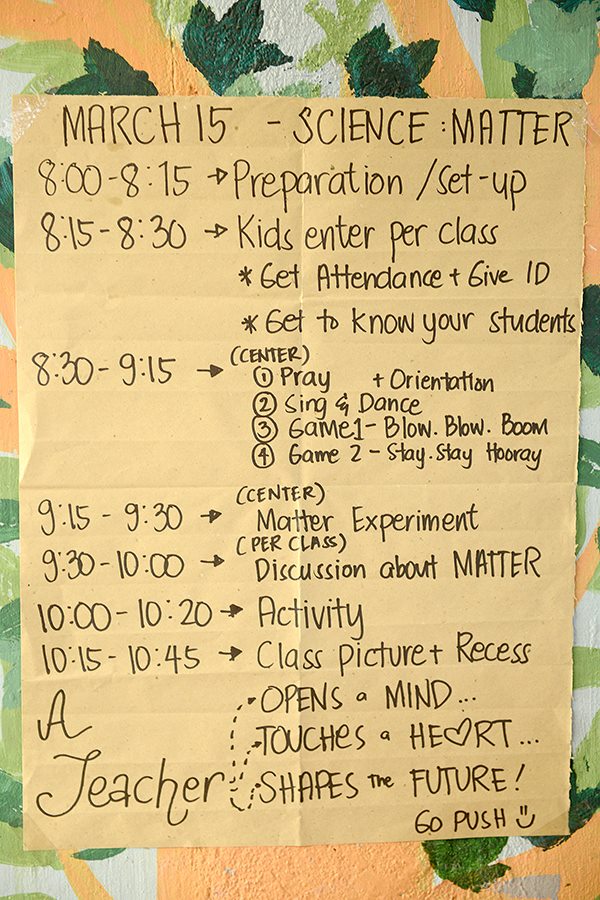 MARCH 15 - SCIENCE : MATTER
8:00-8:15 → Preparation / set-up
8:15-8:30 → Kids enter per class
* Get Attendance + Give ID
* Get to know your students
(CENTER)
8:30-9:15 → ① Pray + Orientation
② Sing & Dance
③ Game1- Blow. Blow. Boom
④ Game 2 - Stay. Stay Hooray
(CENTER)
9:15 - 9:30 → Matter Experiment
(PER CLASS)
9:30-10:00 → Discussion about MATTER
10:00-10:20 → Activity
10:15-10:45 → Class picture + Recess
A Teacher
OPENS a MIND...
TOUCHES a HE♡RT...
SHAPES the FUTURE!
GO PUSH ツ